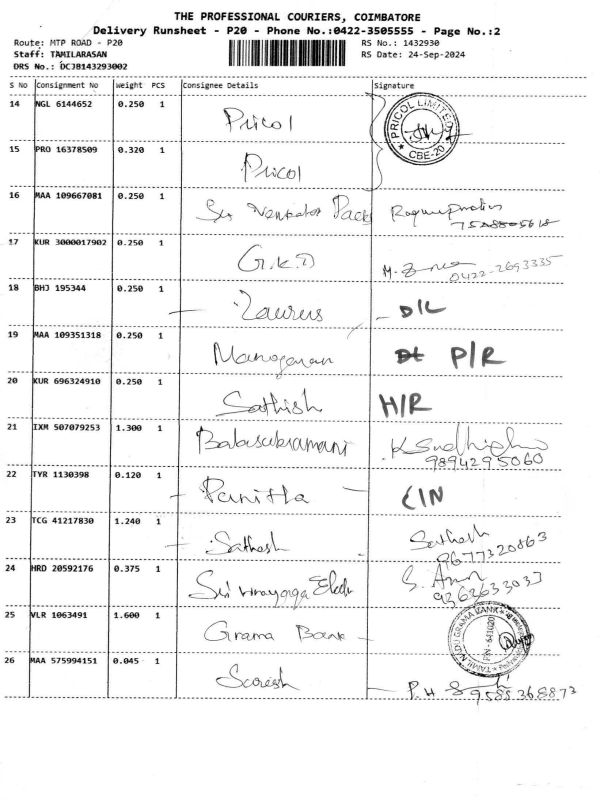 THE PROFESSIONAL COURIERS, COIMBATORE
Delivery Runsheet - P20 - Phone No.:0422-3505555 - Page No.:2
Route: MTP ROAD - P20 RS No.: 1432930
Staff: TAMILARASAN RS Date: 24-Sep-2024
DRS No.: DCJB143293002
S No Consignment No Weight PCS Consignee Details Signature
14 NGL 6144652 0.250 1 Pricol PRICOL LIMITED CBE-20
15 PRO 16378509 0.320 1 Pricol
16 MAA 109667081 0.250 1 Sri Venkator Packs
17 KUR 3000017902 0.250 1 G.K.D M. 0422-2693335
18 BHJ 195344 0.250 1 Zaurus D/L
19 MAA 109351318 0.250 1 Manogaran P/R
20 KUR 696324910 0.250 1 Sathish H/R
21 IXM 507079253 1.300 1 Balasubramani K Sudhighu 9894295060
22 TYR 1130398 0.120 1 IN
23 TCG 41217830 1.240 1 Sathesh Sathesh 9677320863
24 HRD 20592176 0.375 1 Sri Vinayaga S. Arun
25 VLR 1063491 1.600 1 Grama Bank TAMIL NADU GRAMA BANK
26 MAA 575994151 0.045 1 Suresh P.H 9585368873